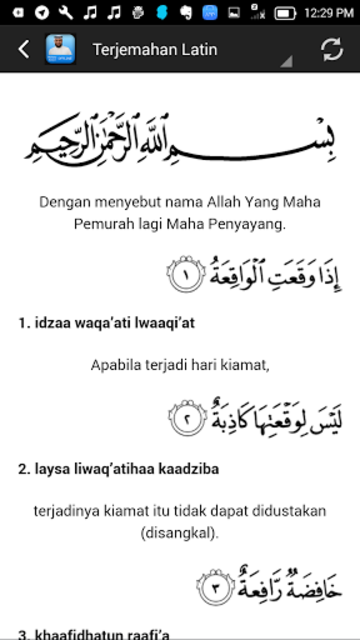 12:29 PM
Terjemahan Latin
بِسْمِ اللَّهِ الرَّحْمَٰنِ الرَّحِيمِ
Dengan menyebut nama Allah Yang Maha
Pemurah lagi Maha Penyayang.
إِذَا وَقَعَتِ الْوَاقِعَةُ ١
1. idzaa waqa'ati lwaaqi'at
Apabila terjadi hari kiamat,
لَيْسَ لِوَقْعَتِهَا كَاذِبَةٌ ٢
2. laysa liwaq'atihaa kaadziba
terjadinya kiamat itu tidak dapat didustakan
(disangkal).
خَافِضَةٌ رَّافِعَةٌ ٣
3. khaafidhatun raafi'a